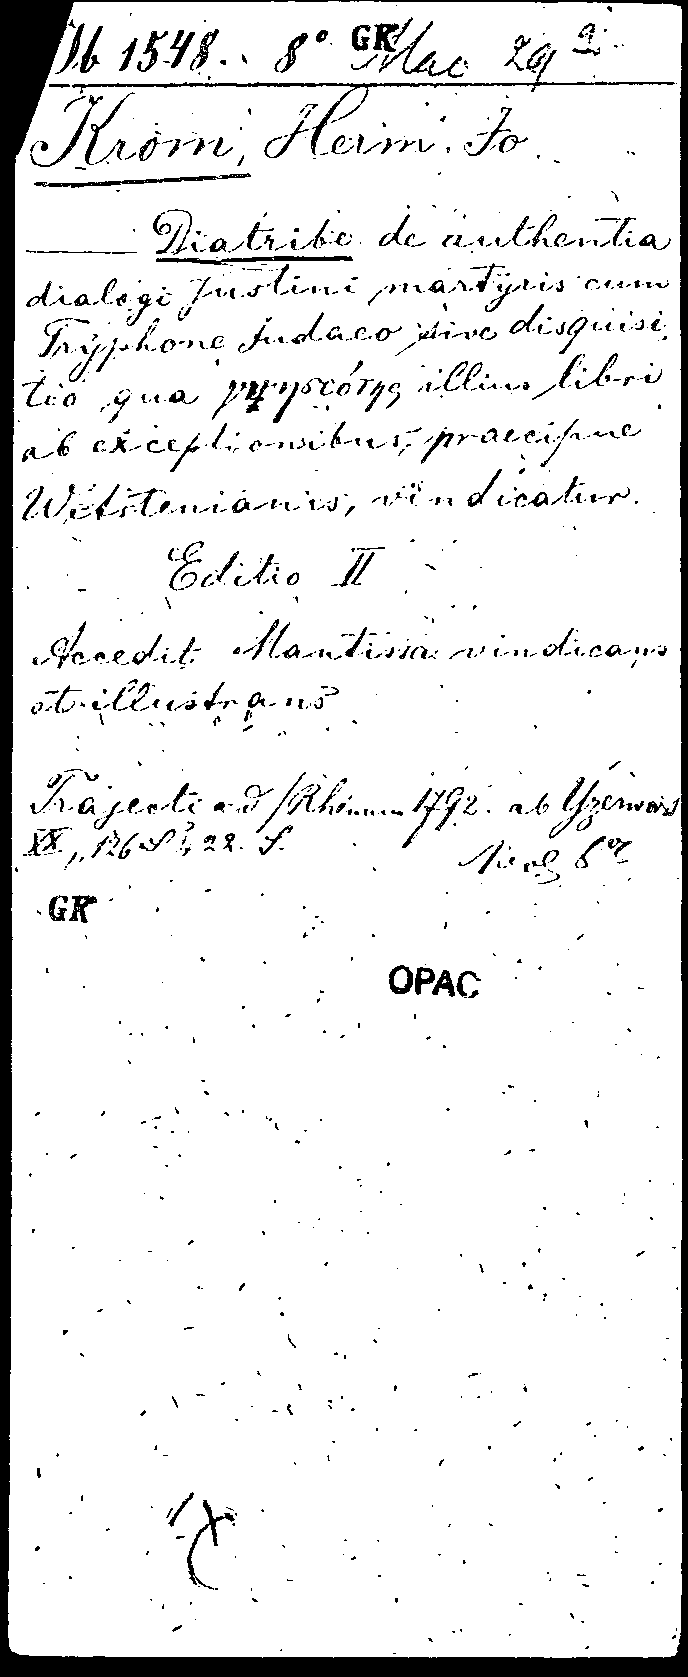 1548. 8° GK Mac 29 a.
Krom, Herm. Jo.
Diatribe de authentia
dialogi Justini martyris cum
Tryphone Judaeo sive disquisi
tio qua γνησιότης illius libri
ab exceptionibus, praecipue
Wetstenianis, vindicatur.
Editio II
Accedit Mantissa vindicans
et illustrans
Trajecti ad Rhenum 1792. ab
XX, 126 S., 22. S. 8°
GK
OPAC